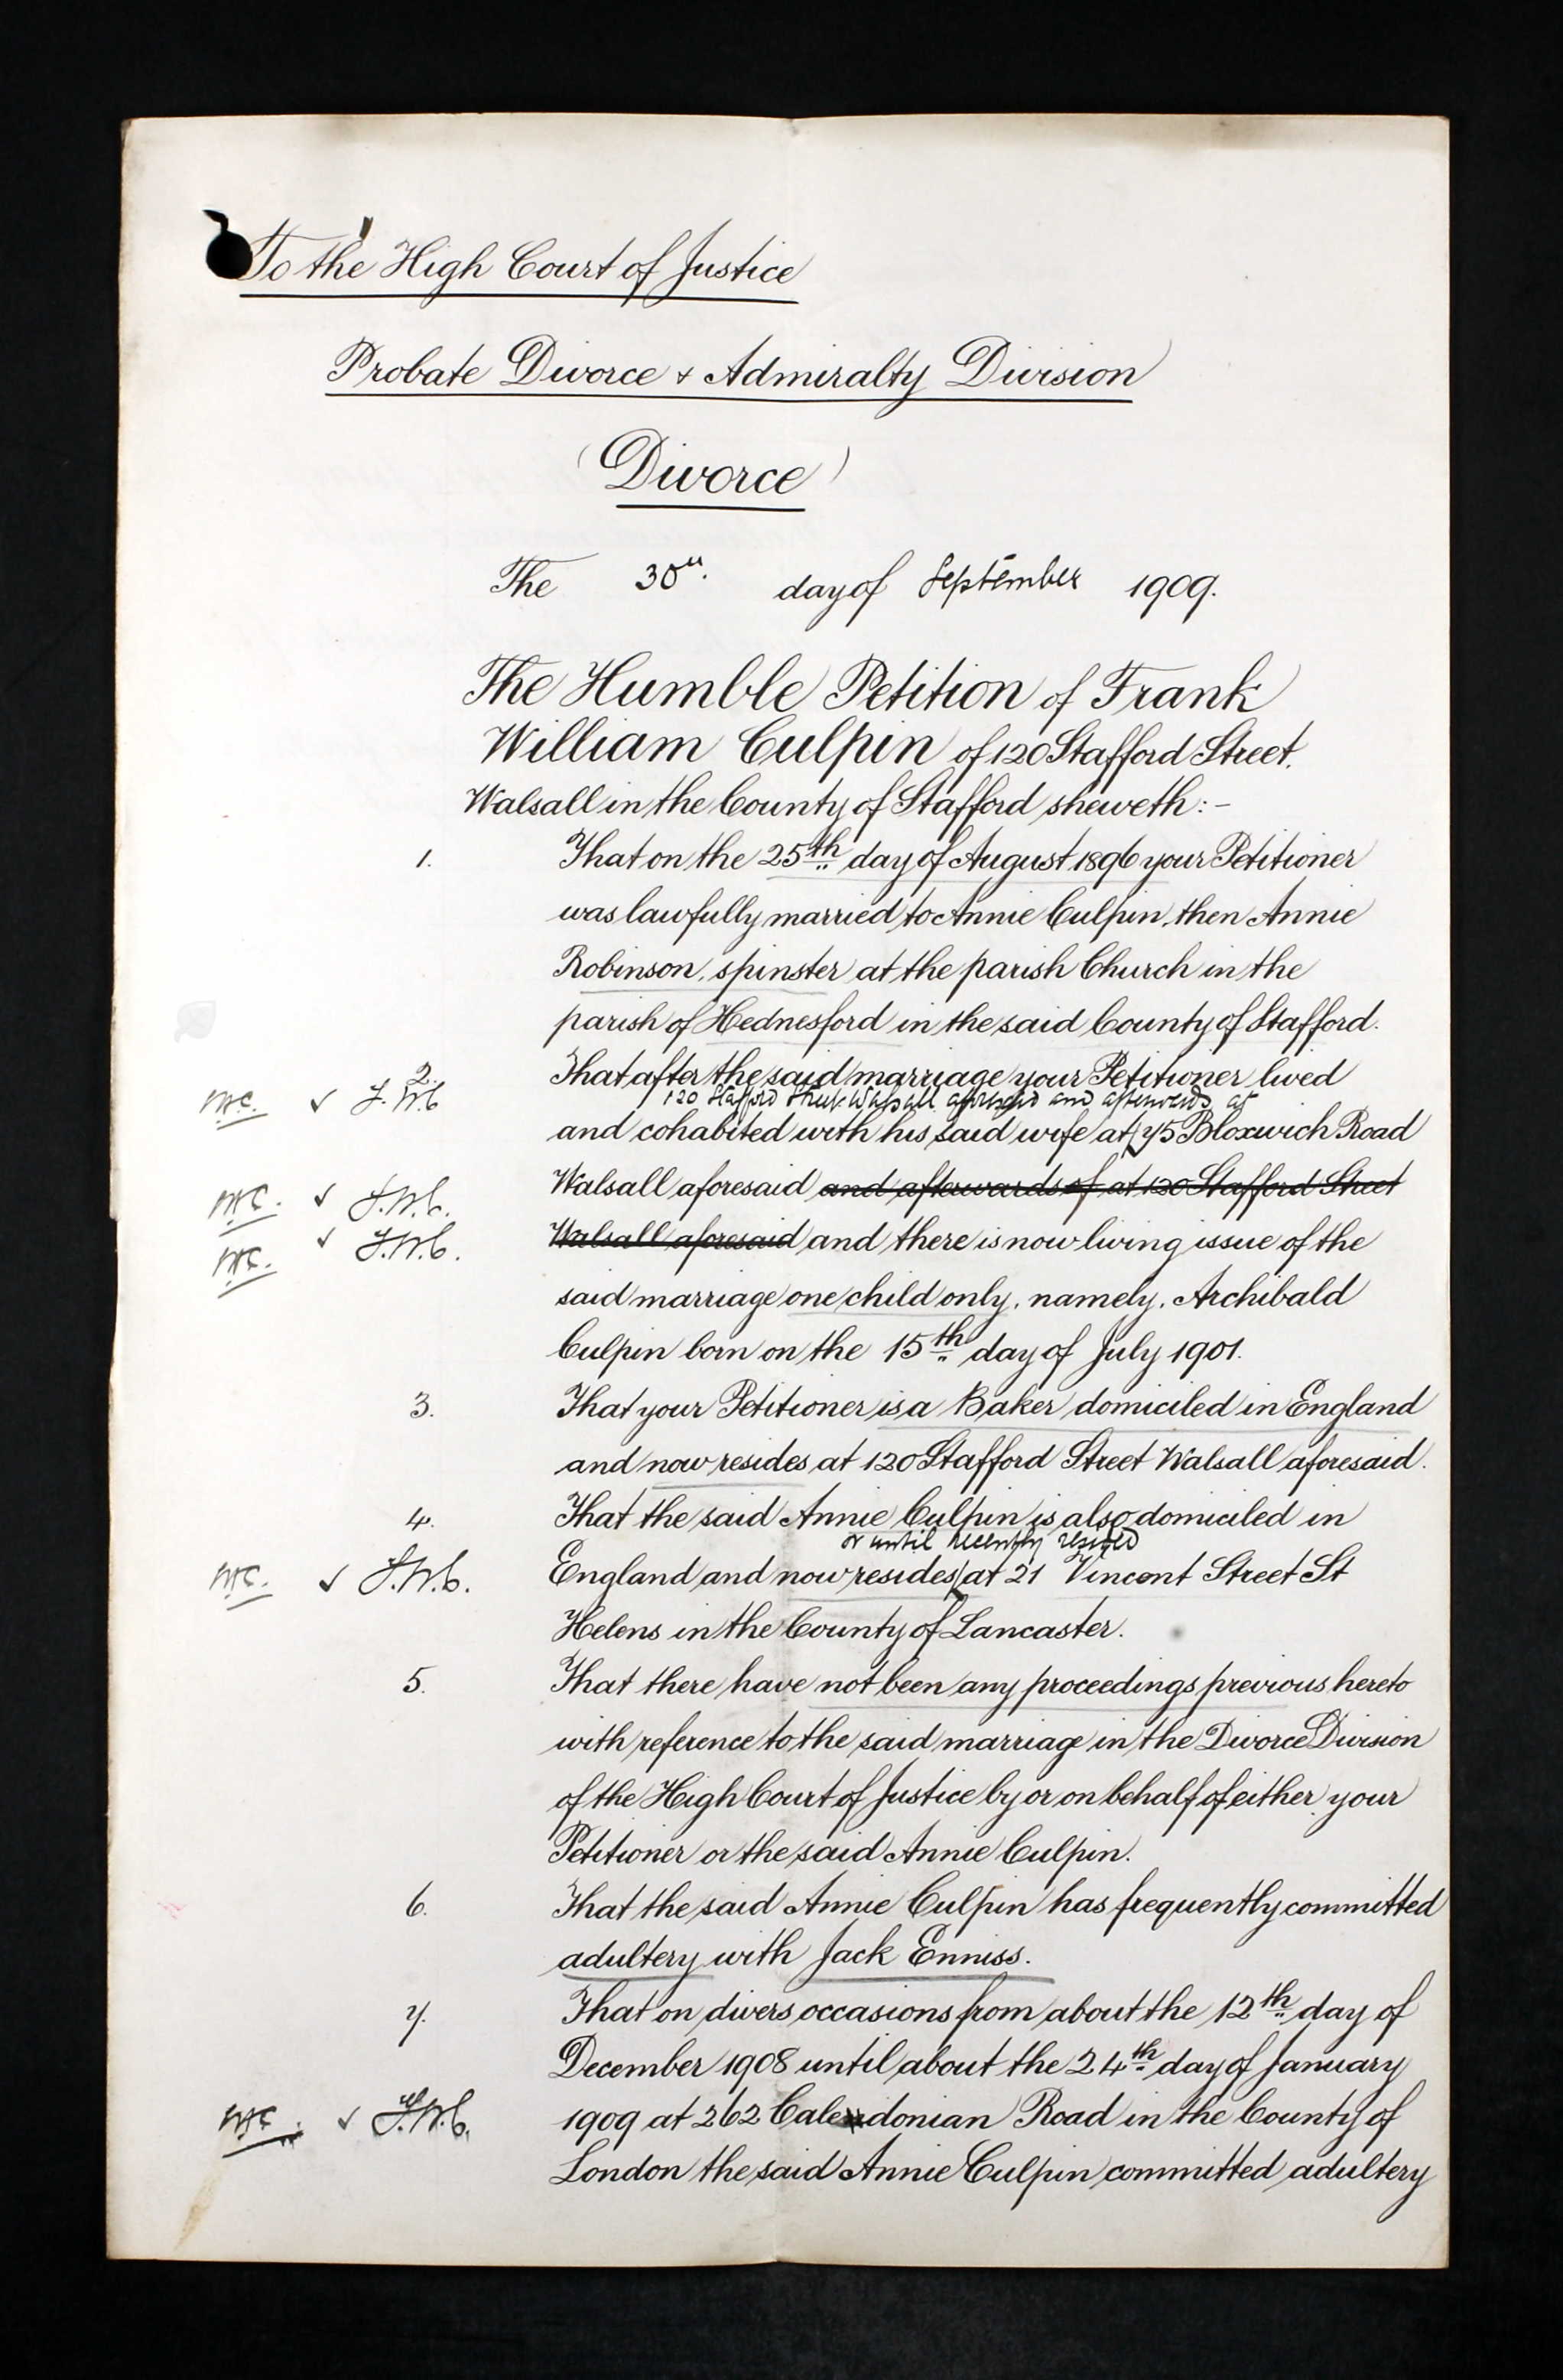 To the High Court of Justice
Probate Divorce & Admiralty Division
(Divorce)
The 30th. day of September 1909.
The Humble Petition of Frank
William Culpin of 120 Stafford Street.
Walsall in the County of Stafford sheweth:-
1. That on the 25th day of August 1896 your Petitioner
was lawfully married to Annie Culpin, then Annie
Robinson, spinster at the parish Church in the
parish of Hednesford in the said County of Stafford.
2. That after the said marriage your Petitioner lived
120 Stafford Street Walsall aforesaid and afterwards at
F.W.C
and cohabited with his said wife at 75 Bloxwich Road
F.W.C. Walsall aforesaid and afterwards of at 120 Stafford Street
F.W.C. Walsall aforesaid and there is now living issue of the
said marriage one child only, namely, Archibald
Culpin born on the 15th day of July 1901.
3. That your Petitioner is a Baker domiciled in England
and now resides at 120 Stafford Street Walsall aforesaid.
4. That the said Annie Culpin is also domiciled in
or until recently resided
F.W.C. England and now resides at 21 Vincent Street St
Helens in the County of Lancaster.
5. That there have not been any proceedings previous hereto
with reference to the said marriage in the Divorce Division
of the High Court of Justice by or on behalf of either your
Petitioner or the said Annie Culpin.
6. That the said Annie Culpin has frequently committed
adultery with Jack Enniss.
7. That on divers occasions from about the 12th day of
December 1908 until about the 24th day of January
F.W.C. 1909 at 262 Caledonian Road in the County of
London the said Annie Culpin committed adultery